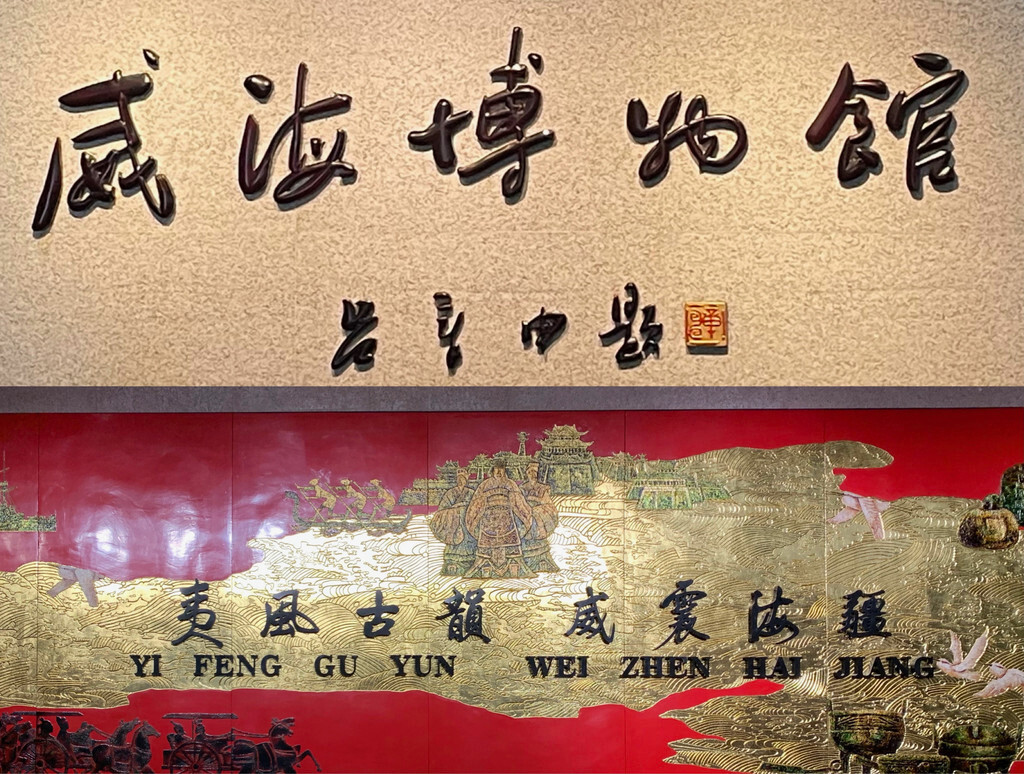 威海博物馆
吕章申题
夷風古韻 威震海疆
YI FENG GU YUN WEI ZHEN HAI JIANG